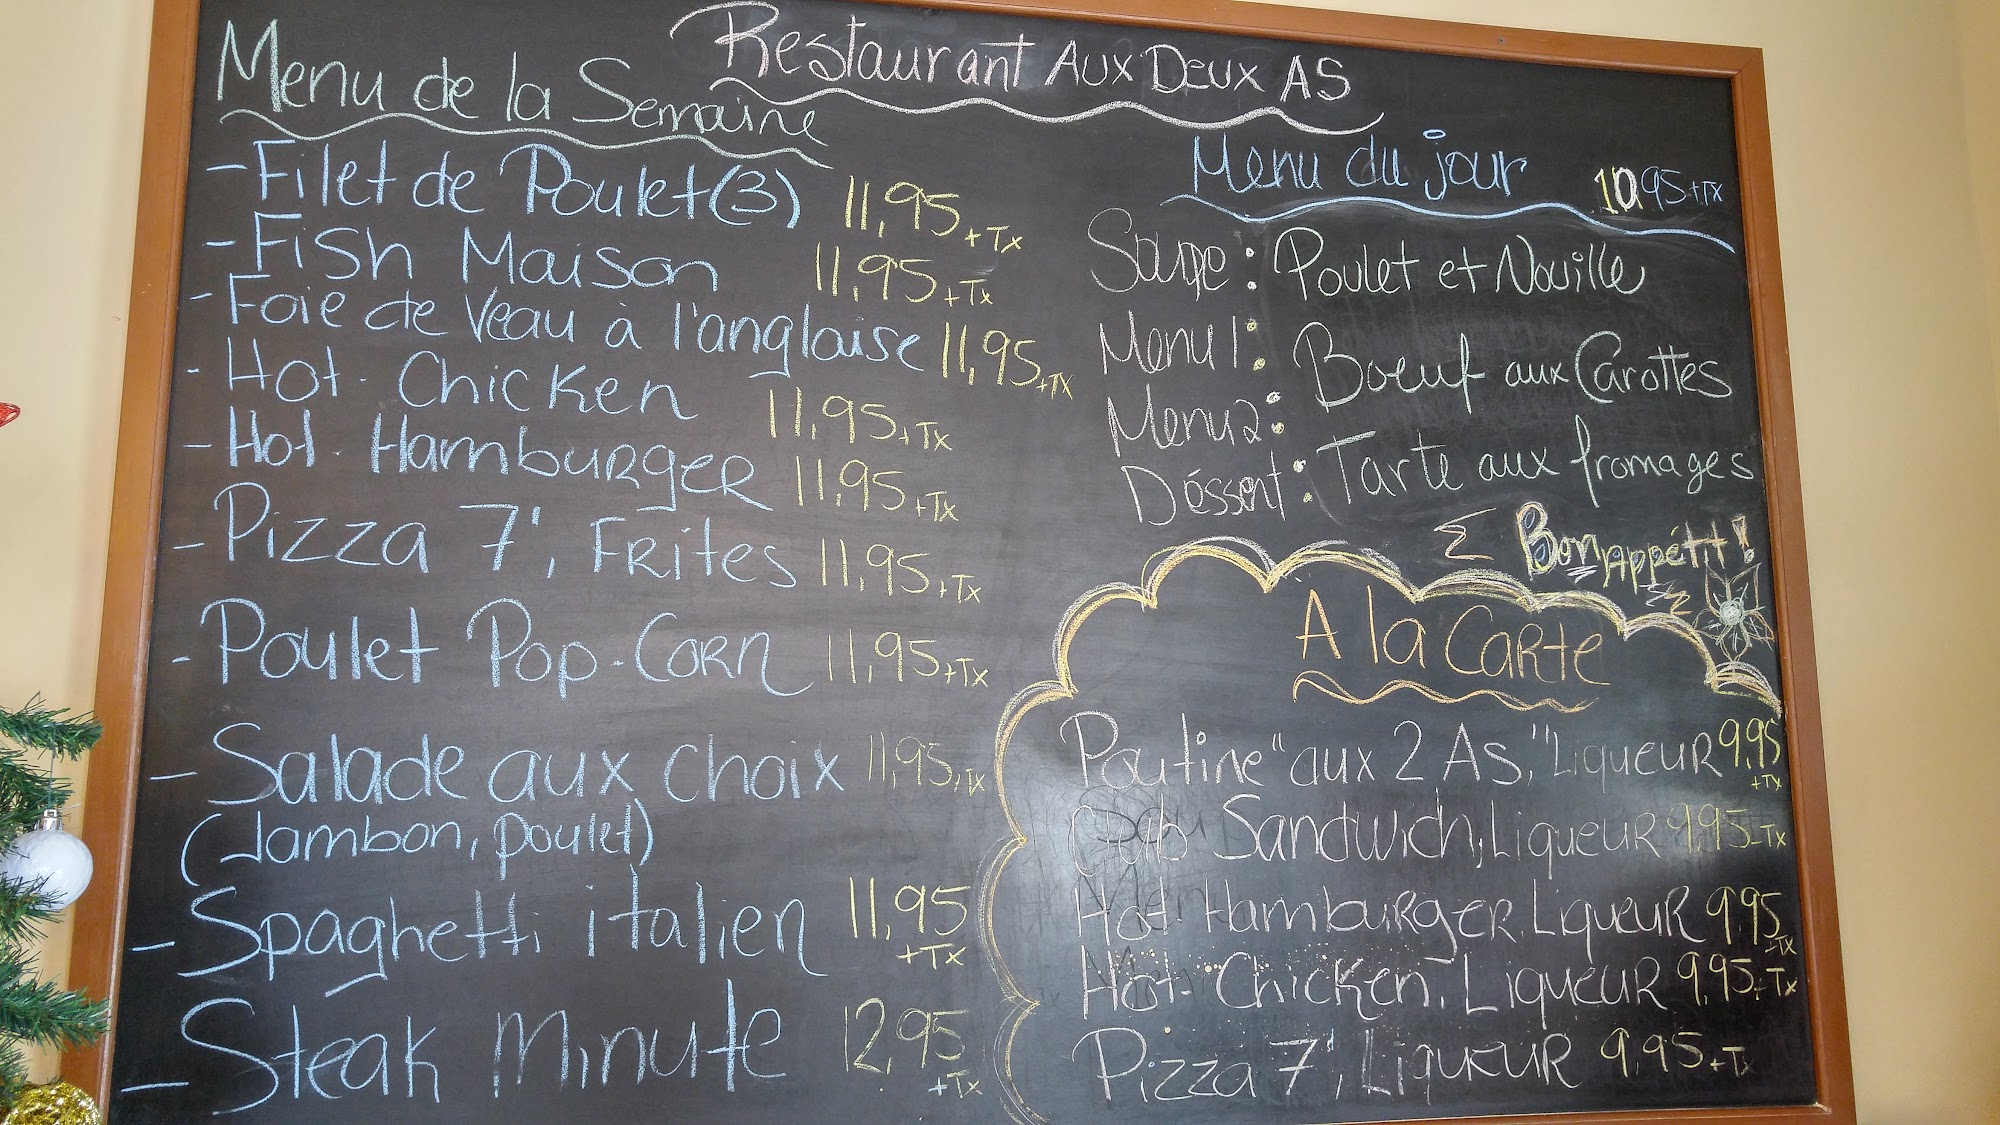 Restaurant Aux Deux As
Menu de la Semaine
- Filet de Poulet (3) 11,95 + Tx
- Fish Maison 11,95 + Tx
- Foie de Veau à l'anglaise 11,95 + Tx
- Hot-Chicken 11,95 + Tx
- Hot-Hamburger 11,95 + Tx
- Pizza 7", Frites 11,95 + Tx
- Poulet Pop-Corn 11,95 + Tx
- Salade aux choix 11,95 + Tx
(Jambon, poulet)
- Spaghetti italien 11,95 + Tx
- Steak Minute 12,95 + Tx
Menu du jour 10,95 + Tx
Soupe : Poulet et Nouille
Menu 1 : Boeuf aux Carottes
Menu 2 :
Déssert : Tarte aux fromages
Bon Appétit !
À la Carte
Poutine "aux 2 As," Liqueur 9,95 + Tx
Club Sandwich, Liqueur 9,95 + Tx
Hot-Hamburger, Liqueur 9,95 + Tx
Hot-Chicken, Liqueur 9,95 + Tx
Pizza 7", Liqueur 9,95 + Tx